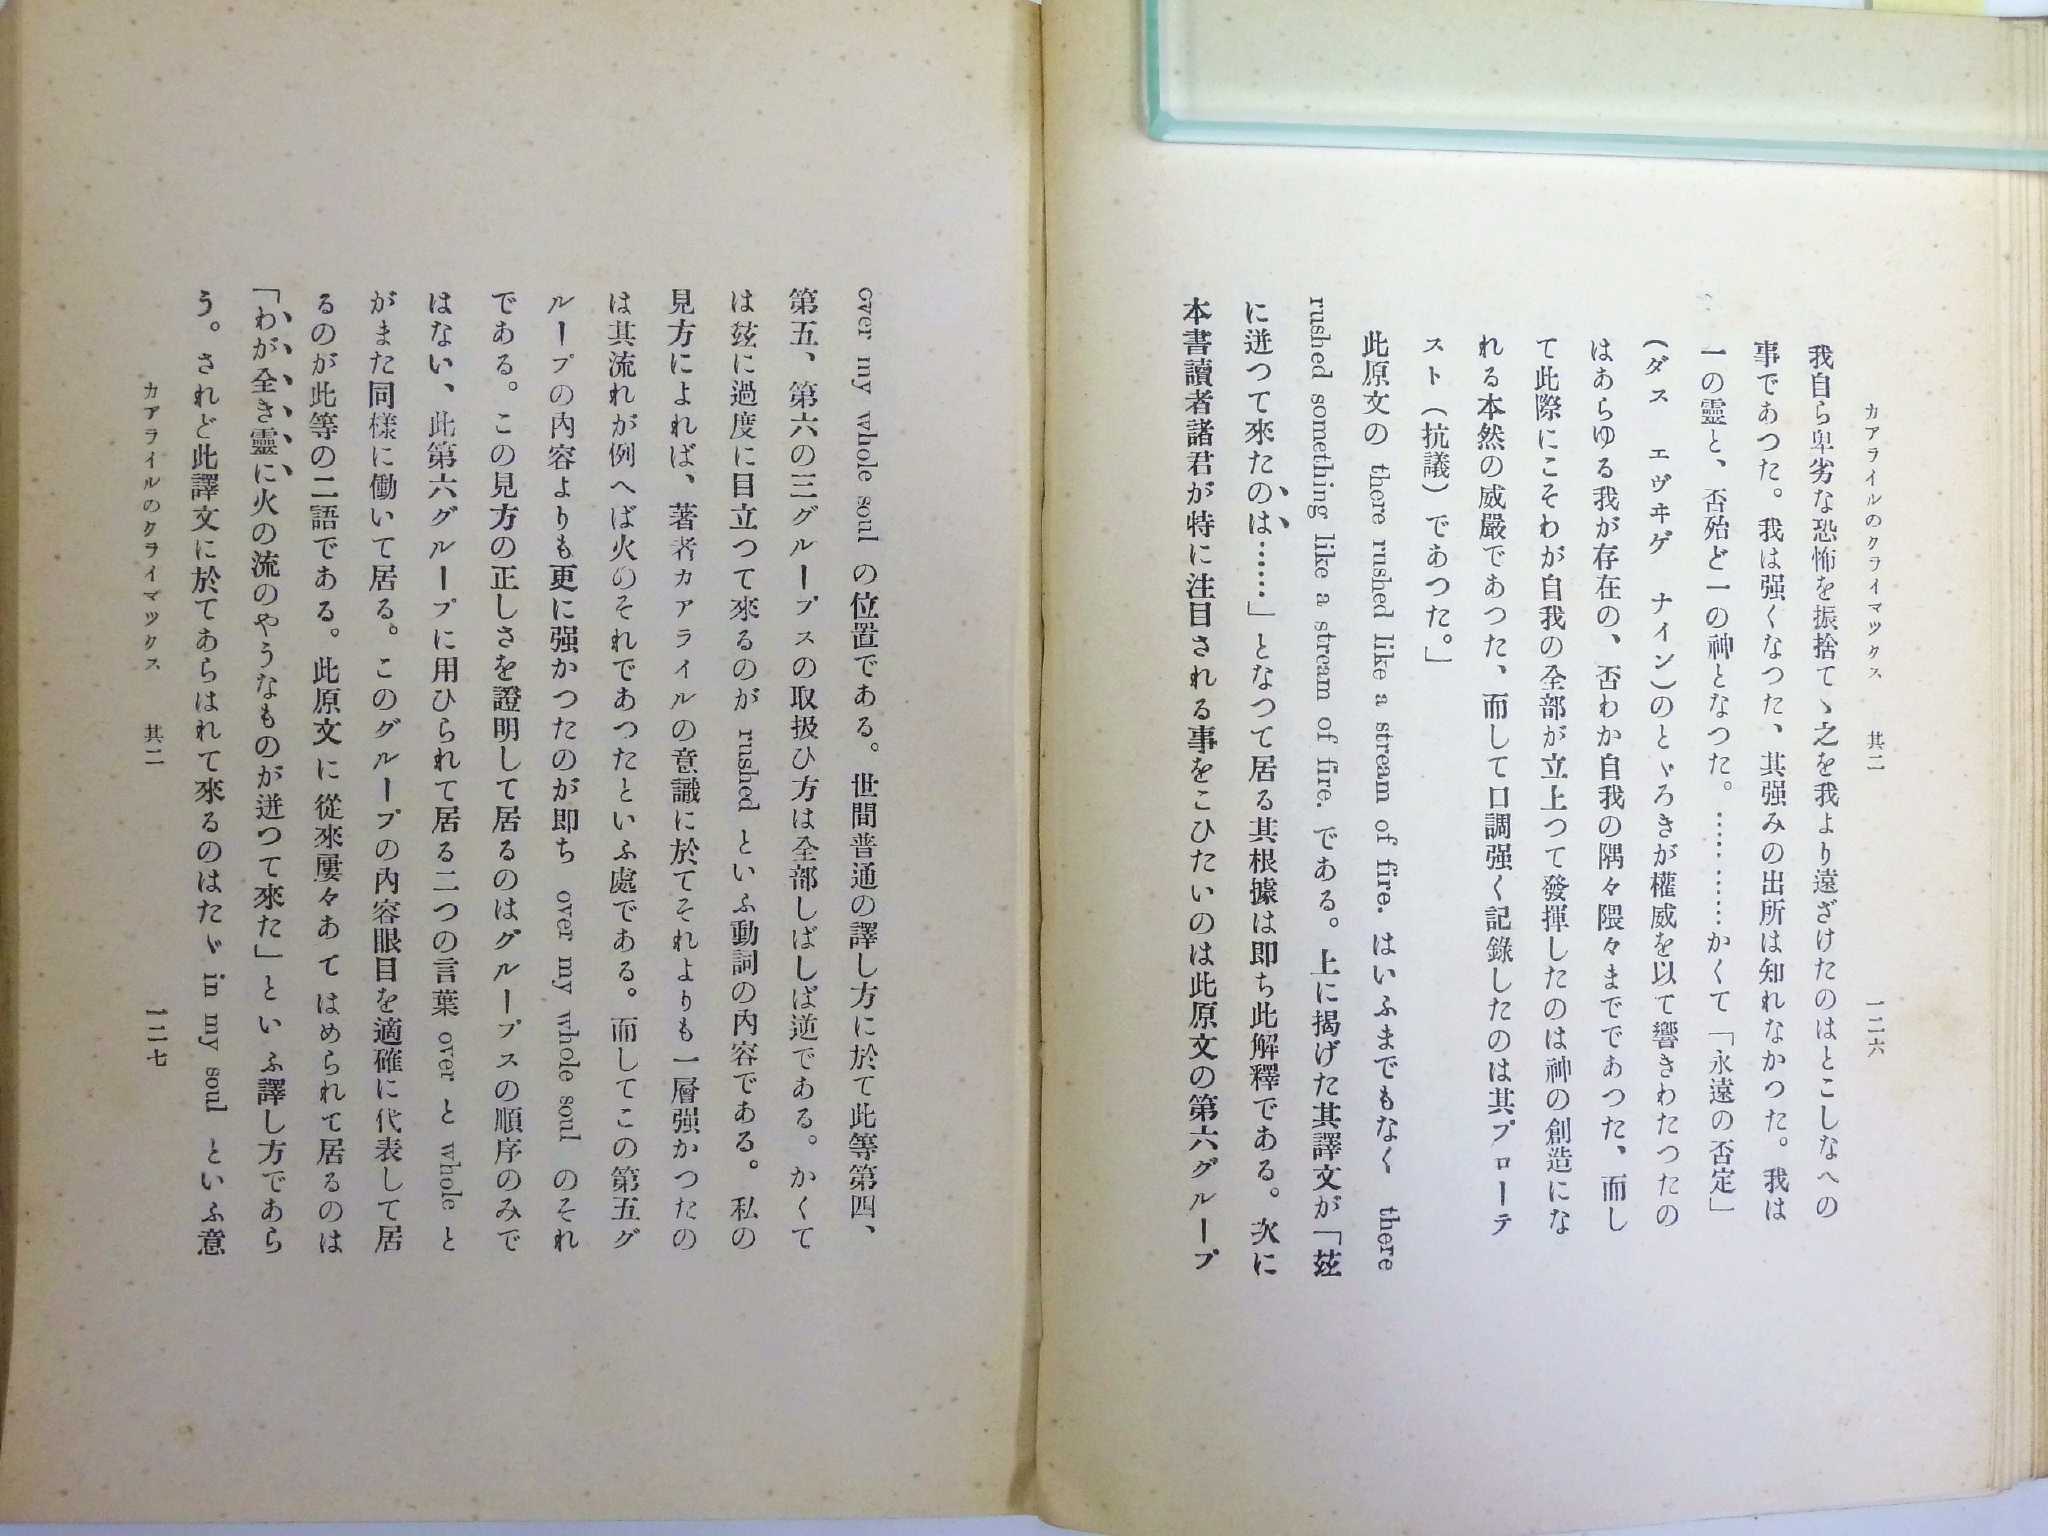 カアライルのクライマツクス　其二　一二六
我自ら卑劣な恐怖を振捨てゝ之を我より遠ざけたのはとこしなへの
事であつた。我は强くなつた、其强みの出所は知れなかつた。我は
一の靈と、否殆ど一の神となつた。…………かくて「永遠の否定」
（ダス　エヴヰゲ　ナイン）のとゞろきが權威を以て響きわたつたの
はあらゆる我が存在の、否わか自我の隅々隈々までであつた、而し
て此際にこそわが自我の全部が立上つて發揮したのは神の創造にな
れる本然の威嚴であつた、而して口調强く記錄したのは其プローテ
スト（抗議）であつた。」
此原文の there rushed like a stream of fire. はいふまでもなく there
rushed something like a stream of fire. である。上に揭げた其譯文が「玆
に迸つて來たのは……」となつて居る其根據は即ち此解釋である。次に
本書讀者諸君が特に注目される事をこひたいのは此原文の第六グループ
over my whole soul の位置である。世間普通の譯し方に於て此等第四、
第五、第六の三グループスの取扱ひ方は全部しばしば逆である。かくて
は玆に過度に目立つて來るのが rushed といふ動詞の內容である。私の
見方によれば、著者カアライルの意識に於てそれよりも一層强かつたの
は其流れが例へば火のそれであつたといふ處である。而してこの第五グ
ループの內容よりも更に强かつたのが即ち over my whole soul のそれ
である。この見方の正しさを證明して居るのはグループスの順序のみで
はない、此第六グループに用ひられて居る二つの言葉 over と whole と
がまた同樣に働いて居る。このグループの內容眼目を適確に代表して居
るのが此等の二語である。此原文に從來屢々あてはめられて居るのは
「わが全き靈に火の流のやうなものが迸つて來た」といふ譯し方であら
う。されど此譯文に於てあらはれて來るのはたゞ in my soul といふ意
カアライルのクライマツクス　其二　一二七